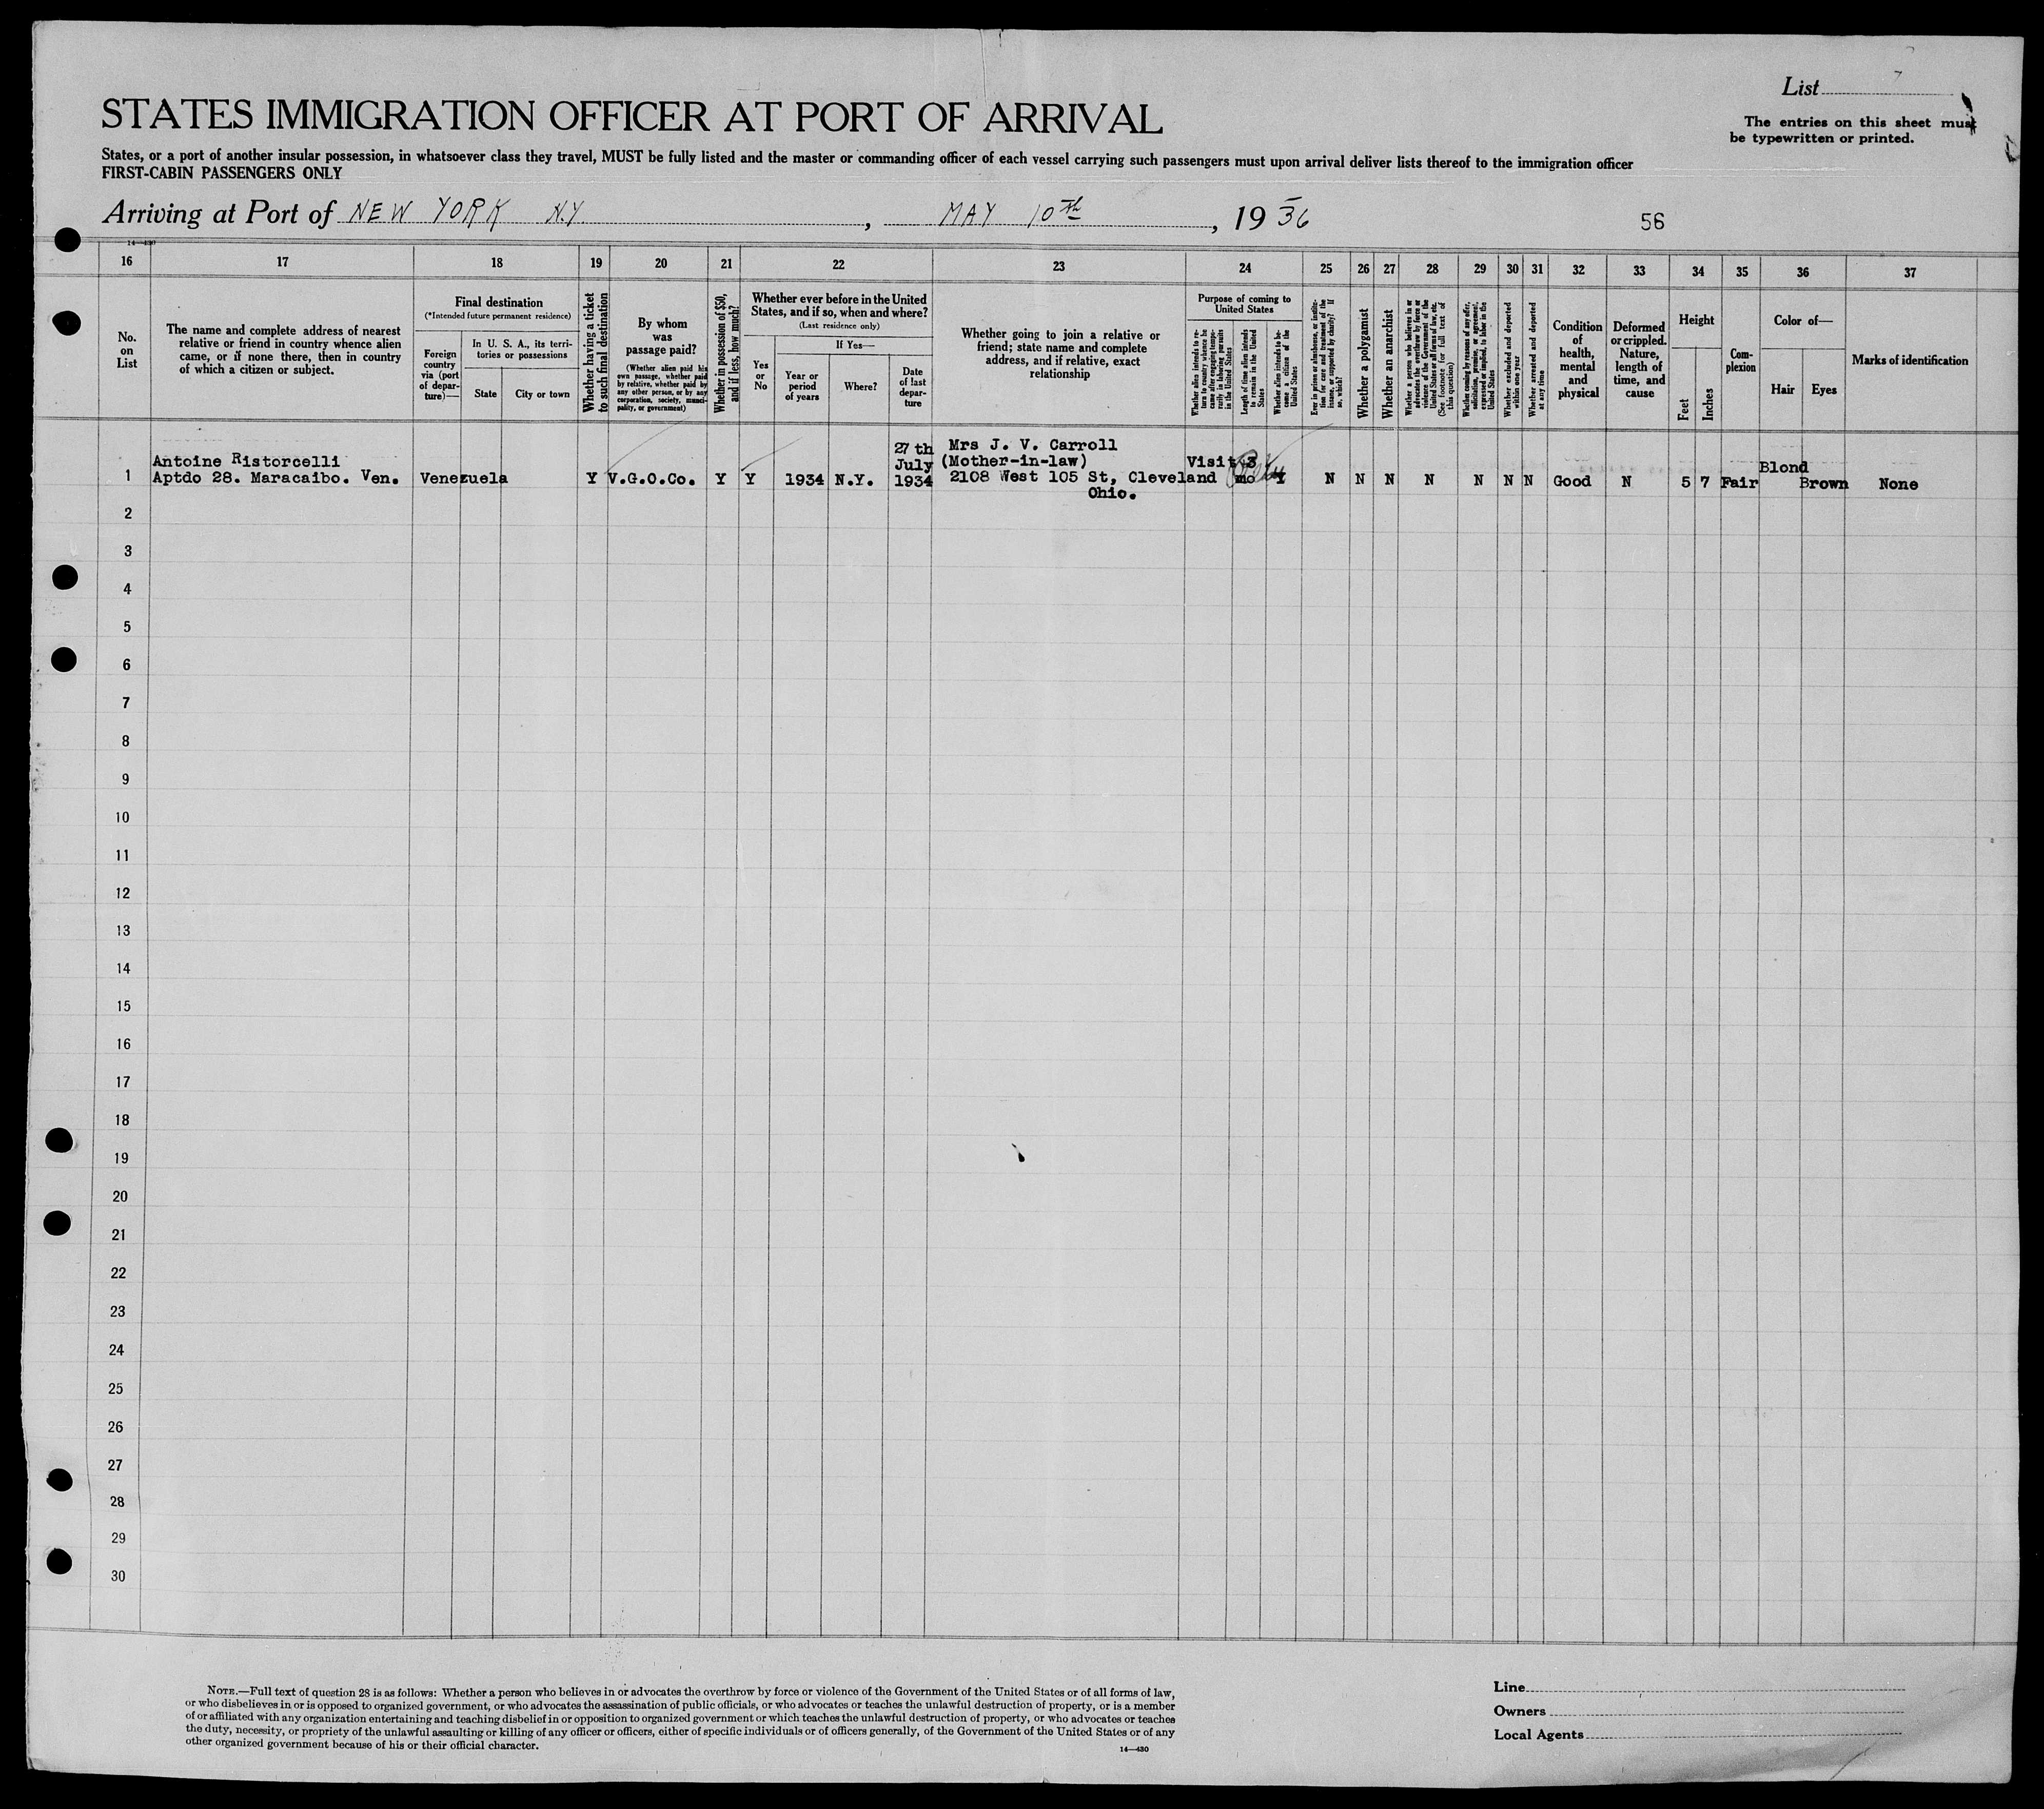 List 7
STATES IMMIGRATION OFFICER AT PORT OF ARRIVAL
The entries on this sheet must
be typewritten or printed.
States, or a port of another insular possession, in whatsoever class they travel, MUST be fully listed and the master or commanding officer of each vessel carrying such passengers must upon arrival deliver lists thereof to the immigration officer
FIRST-CABIN PASSENGERS ONLY
Arriving at Port of NEW YORK N.Y , MAY 10th , 1936
56
14—430
16 17 18 19 20 21 22 23 24 25 26 27 28 29 30 31 32 33 34 35 36 37
No.
on
List
The name and complete address of nearest
relative or friend in country whence alien
came, or if none there, then in country
of which a citizen or subject.
Final destination
(*Intended future permanent residence)
Foreign
country
via (port
of depar-
ture)—
In U. S. A., its terri-
tories or possessions
State
City or town
Whether having a ticket
to such final destination
By whom
was
passage paid?
(Whether alien paid his
own passage, whether paid
by relative, whether paid by
any other person, or by any
corporation, society, munici-
pality, or government)
Whether in possession of $50,
and if less, how much?
Whether ever before in the United
States, and if so, when and where?
(Last residence only)
Yes
or
No
If Yes—
Year or
period
of years
Where?
Date
of last
depar-
ture
Whether going to join a relative or
friend; state name and complete
address, and if relative, exact
relationship
Purpose of coming to
United States
Whether alien intends to re-
turn to country whence he
came after engaging tempo-
rarily in laboring pursuits
in the United States
Length of time alien intends
to remain in the United
States
Whether alien intends to be-
come a citizen of the
United States
Ever in prison or almshouse, or institu-
tion for care and treatment of the
insane, or supported by charity? If
so, which?
Whether a polygamist
Whether an anarchist
Whether a person who believes in or
advocates the overthrow by force or
violence of the Government of the
United States or all forms of law, etc.
(See footnote for full text of
this question)
Whether coming by reasons of any offer,
solicitation, promise, or agreement,
expressed or implied, to labor in the
United States
Whether excluded and deported
within one year
Whether arrested and deported
at any time
Condition
of
health,
mental
and
physical
Deformed
or crippled.
Nature,
length of
time, and
cause
Height
Feet
Inches
Com-
plexion
Color of—
Hair
Eyes
Marks of identification
1
Antoine Ristorcelli
Aptdo 28. Maracaibo. Ven.
Venezuela
Y
V.G.O.Co.
Y
Y
1934
N.Y.
27th
July
1934
Mrs J. V. Carroll
(Mother-in-law)
2108 West 105 St, Cleveland
Ohio.
Visit
3
mo
N
N
N
N
N
N
N
Good
N
5
7
Fair
Blond
Brown
None
2
3
4
5
6
7
8
9
10
11
12
13
14
15
16
17
18
19
20
21
22
23
24
25
26
27
28
29
30
NOTE.—Full text of question 28 is as follows: Whether a person who believes in or advocates the overthrow by force or violence of the Government of the United States or of all forms of law,
or who disbelieves in or is opposed to organized government, or who advocates the assassination of public officials, or who advocates or teaches the unlawful destruction of property, or is a member
of or affiliated with any organization entertaining and teaching disbelief in or opposition to organized government or which teaches the unlawful destruction of property, or who advocates or teaches
the duty, necessity, or propriety of the unlawful assaulting or killing of any officer or officers, either of specific individuals or of officers generally, of the Government of the United States or of any
other organized government because of his or their official character.
14—430
Line
Owners
Local Agents